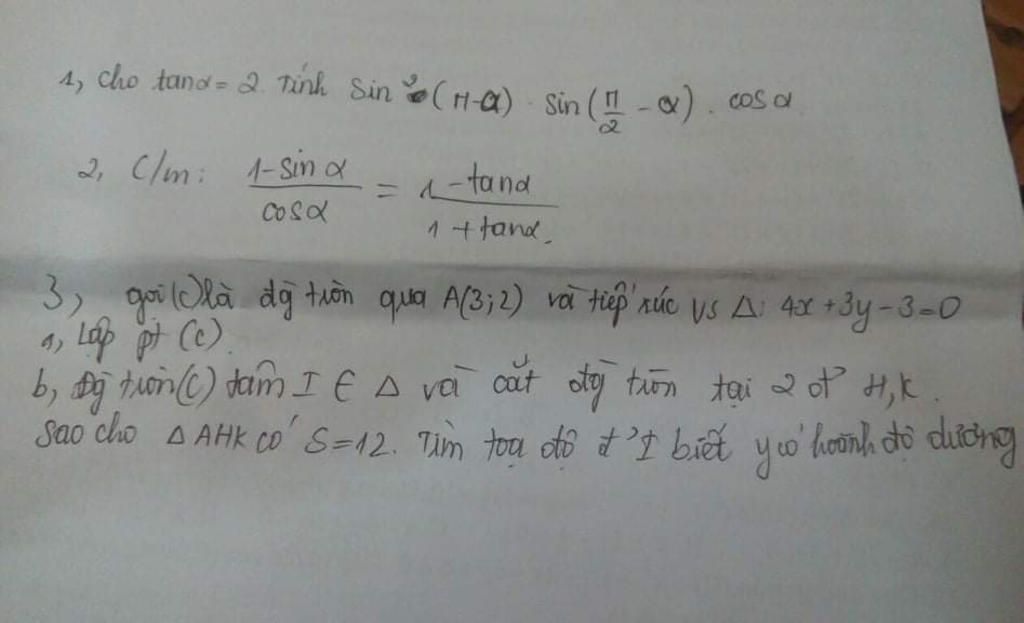 1, Cho tanα = 2. Tính sin²(π-α) . sin(π/2 - α) . cosα
2, C/m: (1-sinα)/cosα = (1-tanα)/(1+tanα).
3, gọi (c) là đg̀ tròn qua A(3;2) và tiếp xúc vs Δ: 4x+3y-3=0
a, Lập pt (C).
b, Đg̀ tròn (C) tâm I ∈ Δ và cắt đg̀ tròn tại 2 đ' H,K.
Sao cho Δ AHK có S=12. Tìm toạ độ đ' I biết có hoành độ dương